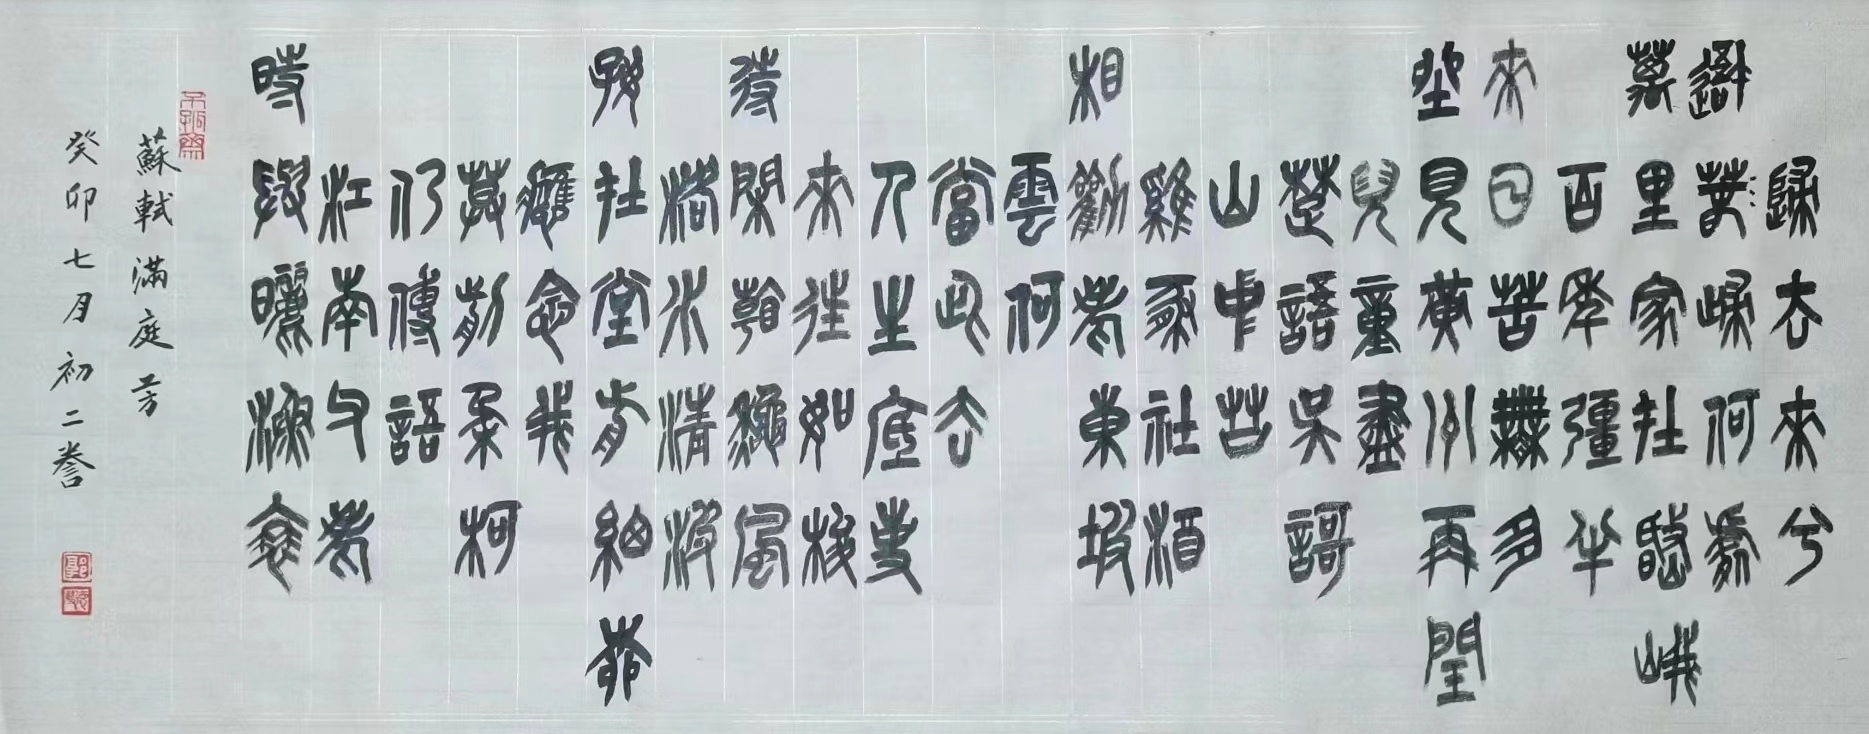 歸去來兮
吾歸何處
萬里家在岷峨
百年彊半
來日苦無多
坐見黃州再閏
兒童盡
楚語吳謌
山中友
雞豚社酒
相勸老東坡
雲何
當此去
人生底事
來往如梭
待閑看秋風
洛水清波
好在堂前細柳
應念我
莫剪柔柯
仍傳語
江南父老
時與曬漁蓑
蘇軾滿庭芳
癸卯七月初二謄